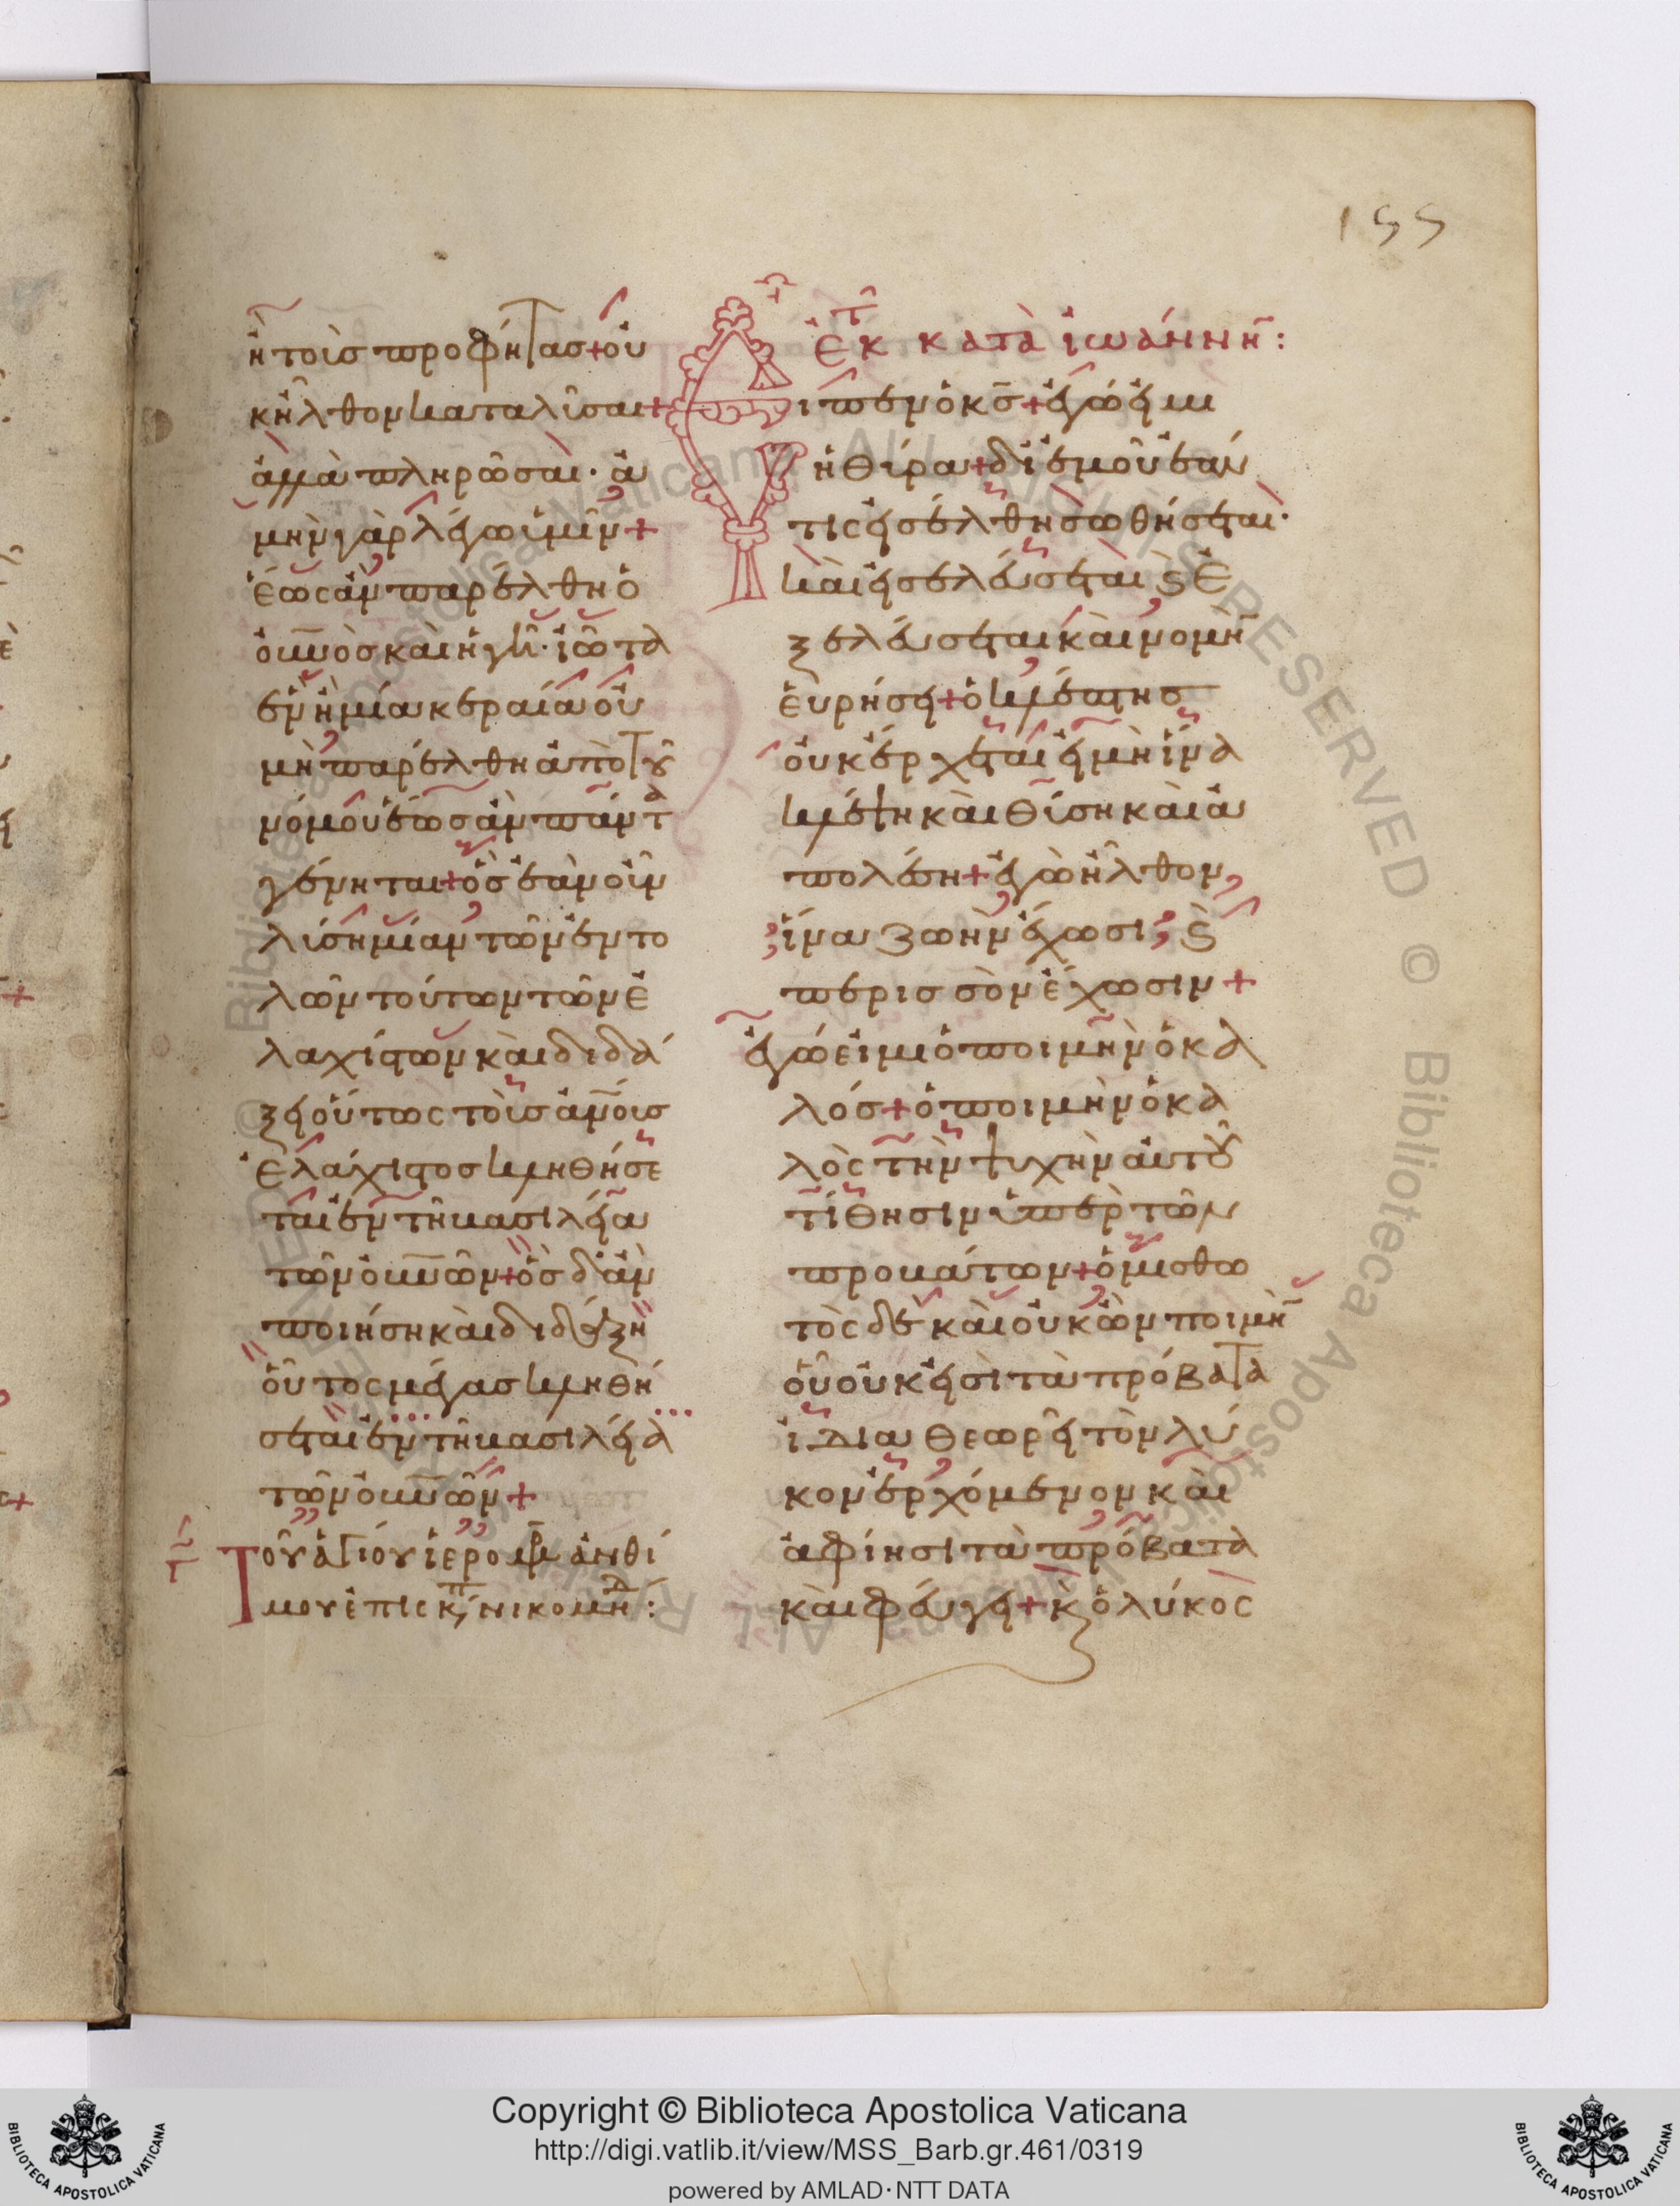 155
ἢ τοὺσ προφήτασ + οὐ
κ ἦλθον καταλῦσαι +
ἀλλὰ πληρῶσαι · ἀ
μὴν γὰρ λέγω ὑμῖν +
ἕως ἂν παρέλθη ὁ
οὐνοσ καὶ ἡ γῆ · ἰῶτα
ἓν ἢ μία κεραία οὐ
μὴ παρέλθη ἀπὸ τοῦ
νόμου ἕωσ ἂν πάντα
γένηται + ὃσ ἐὰν οὖν
λύση μίαν τῶν ἐντο
λῶν τούτων τῶν ἐ
λαχίστων καὶ διδά
ξει οὕτως τοὺσ ἀνουσ
ἐλάχιστοσ κληθήσε
ται ἐν τῆ βασιλεία
τῶν οὐνῶν + ὃσ δ' ἂν
ποιήση καὶ διδάξη
οὗτος μέγασ κληθή
σεται ἐν τῆ βασιλεία
τῶν οὐνῶν +
Τοῦ ἁγίου ἱερομρ ἀνθί
μου ἐπισκπ νικομηδ :
ἐκ τ κατὰ ἰωάννην :
Εἶπεν ὁ κσ + ἐγώ εἰμι
ἡ θύρα + δι' ἐμοῦ ἐάν
τις εἰσέλθη σωθήσεται ·
καὶ εἰσελεύσεται καὶ ἐ
ξελεύσεται καὶ νομὴν
εὑρήσει + ὁ κλέπτησ
οὐκ ἔρχεται εἰ μὴ ἵνα
κλέψη καὶ θύση καὶ ἀ
πολέση + ἐγὼ ἦλθον,
ἵνα ζωὴν ἔχωσι, καὶ
περισσὸν ἔχωσιν +
ἐγώ εἰμι ὁ ποιμὴν ὁ κα
λόσ + ὁ ποιμὴν ὁ κα
λὸς τὴν ψυχὴν αὐτοῦ
τίθησιν ὑπὲρ τῶν
προβάτων + ὁ μισθω
τὸς δὲ καὶ οὐκ ὢν ποιμὴν
οὗ οὐκ εἰσὶ τὰ πρόβατα
ἴδια θεωρεῖ τὸν λύ
κον ἐρχόμενον καὶ
ἀφίησι τὰ πρόβατα
καὶ φεύγει + κ ὁ λύκος
Copyright © Biblioteca Apostolica Vaticana
http://digi.vatlib.it/view/MSS_Barb.gr.461/0319
powered by AMLAD·NTT DATA
BIBLIOTECA APOSTOLICA VATICANA
BIBLIOTECA APOSTOLICA VATICANA